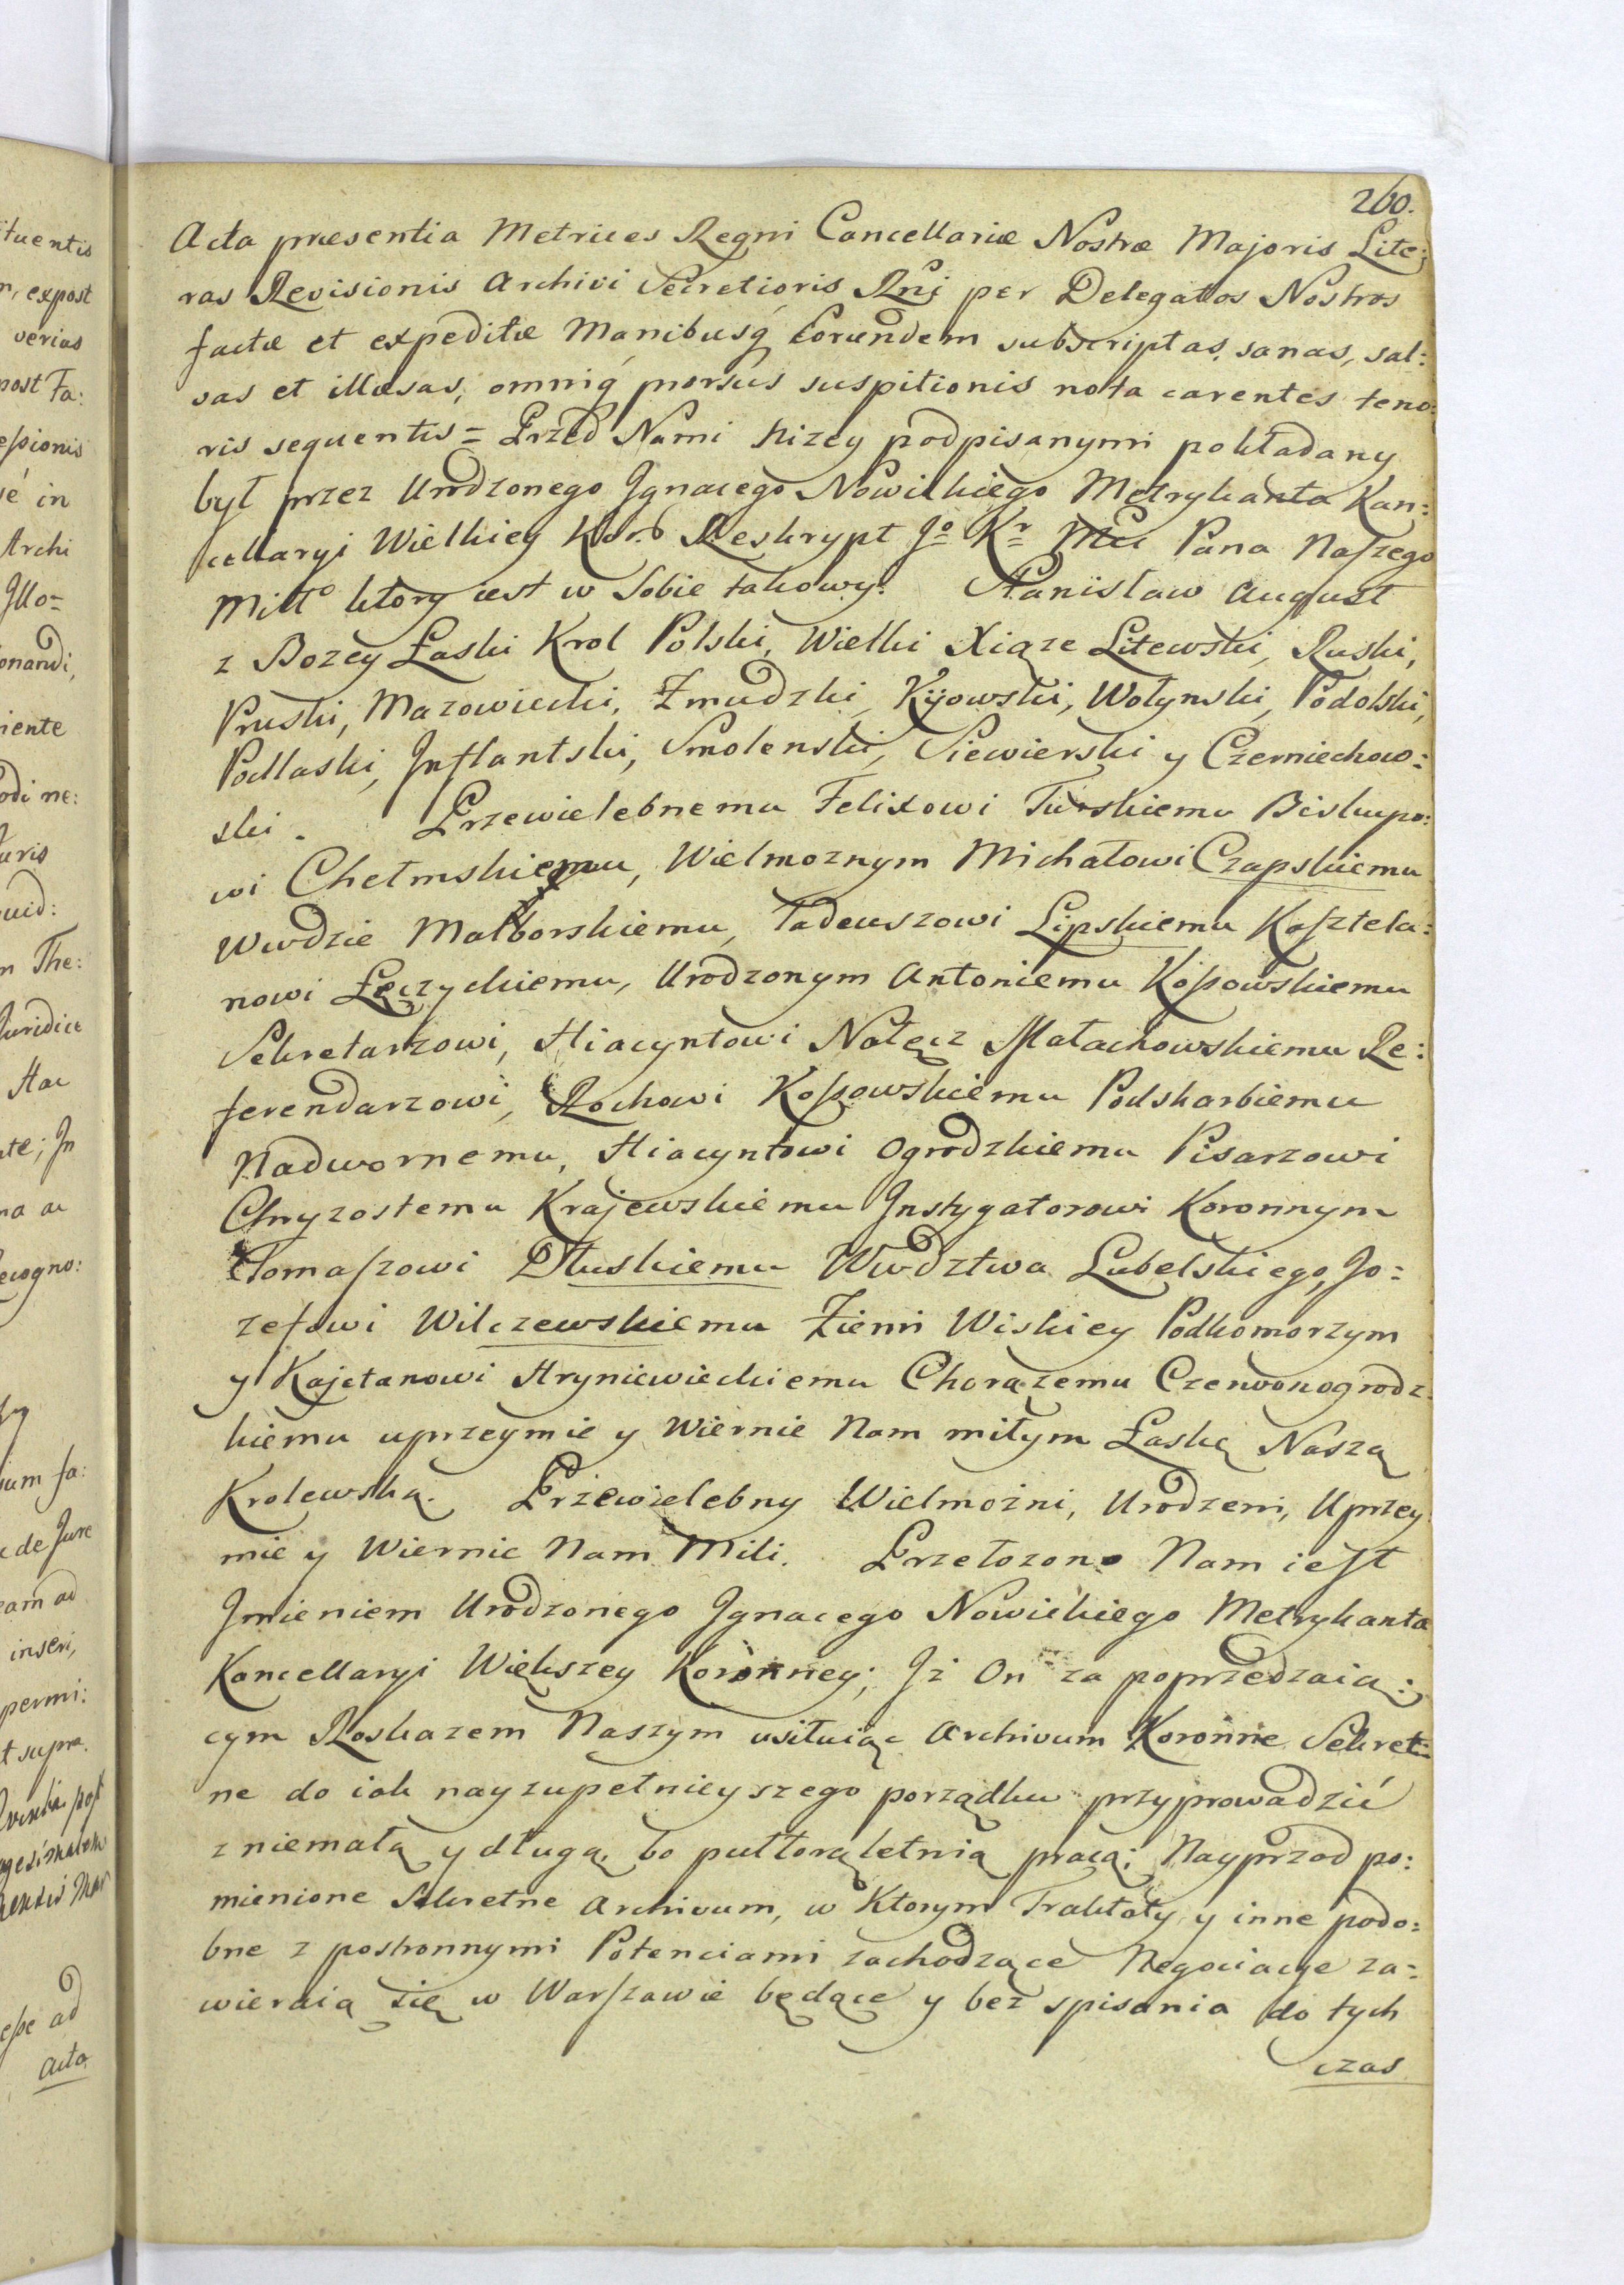 260.
Acta praesentia Metrices Regni Cancellariæ Nostræ Majoris Lite:
ras Revisionis Archivi Secretioris Rni per Delegatos Nostros
factæ et expeditæ Manibusq Eorundem subscriptas, sanas, sal:
vas et illæsas, omniq prorsus suspitionis nota carentes teno:
ris sequentis = Przed Nami niżey podpisanymi pokładany
był przez Urodzonego Jgnacego Nowickiego Metrykanta Kan:
cellaryi Wielkiey Kor: Reskrypt Jo Kr Mci Pana Naszego
Miłło ktory iest w Sobie takowy. Stanisław August
z Bozey Łaski Krol Polski, Wielki Xiąze Litewski, Ruski,
Pruski, Mazowiecki, Zmudzki, Kijowski, Wołynski, Podolski,
Podlaski, Jnflantski, Smolenski, Siewierski y Czerniechow:
ski. Przewielebnemu Felixowi Turskiemu Biskupo:
wi Chełmskiemu, Wielmoznym Michałowi Czapskiemu
Wwdzie Malborskiemu, Tadeuszowi Lipskiemu Kasztela:
nowi Łęczyckiemu, Urodzonym Antoniemu Kossowskiemu
Sekretarzowi, Hiacyntowi Nałęcz Małachowskiemu Re:
ferendarzowi, Rochowi Kossowskiemu Podskarbiemu
Nadwornemu, Hiacyntowi Ogrodzkiemu Pisarzowi
Chryzostemu Krajewskiemu Jnstygatorowi Koronnym
Tomaszowi Dłuskiemu Wwdztwa Lubelskiego, Jo:
zefowi Wilczewskiemu Ziemi Wiskiey Podkomorzym
y Kajetanowi Hryniewieckiemu Chorązemu Czerwonogrodz
kiemu uprzeymie y Wiernie Nam miłym Łaskę Naszą
Krolewską. Przewielebny Wielmożni, Urodzeni, Uprzey
mie y Wiernie Nam Mili. Przełozono Nam iest
Jmieniem Urodzonego Jgnacego Nowickiego Metrykanta
Kancellaryi Większey Koronney; Jż On za poprzedzaią:
cym Roskazem Naszym usiłuiąc Archivum Koronne Sekret:
ne do iak nayzupełnieyszego porządku przyprowadzić
z niemałą y długą, bo pułtoraletnią pracą; Nayprzod po:
mienione Sekretne Archivum, w Ktorym Traktaty y inne podo:
bne z postronnymi Potenciami zachodzące Negociacye za:
wieraią się w Warszawie będące y bez spisania do tych
czas